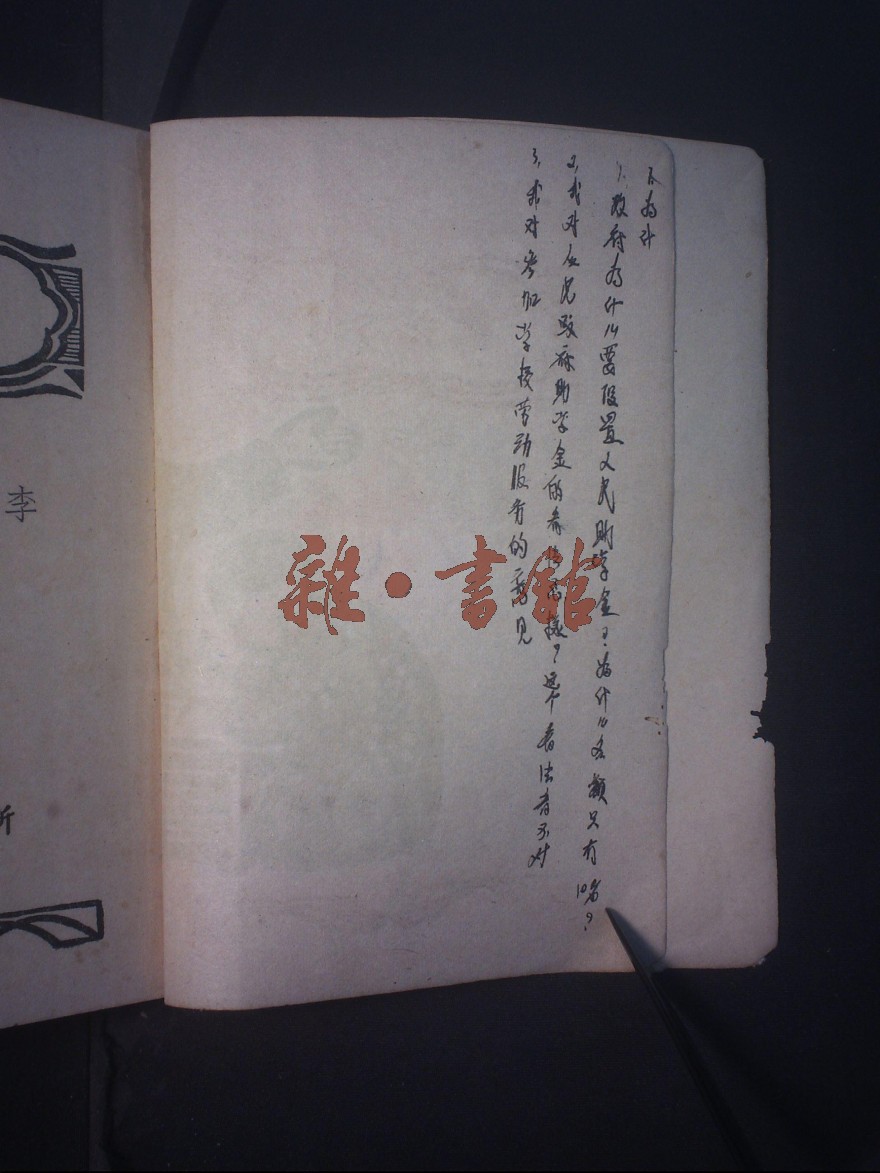 下为计
1. 政府为什么要设置人民助学金?为什么名额只有10名?
2. 我对人民政府助学金的看怎様?这个看法者不对
3. 我对参加学校劳动服务的意见
雜·書館
李